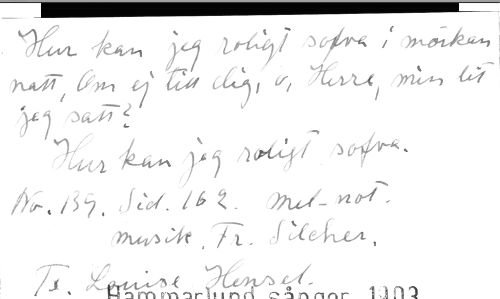 Hur kan jag roligt sofva i mörkan
natt, Om ej till dig, o, Herre, min lit
jag satt?
Hur kan jag roligt sofva.
No. 139. Sid. 162. Mel-not.
musik. Fr. Silcher.
Tx. Louise Hensel.
Hammarlund sånger 1903